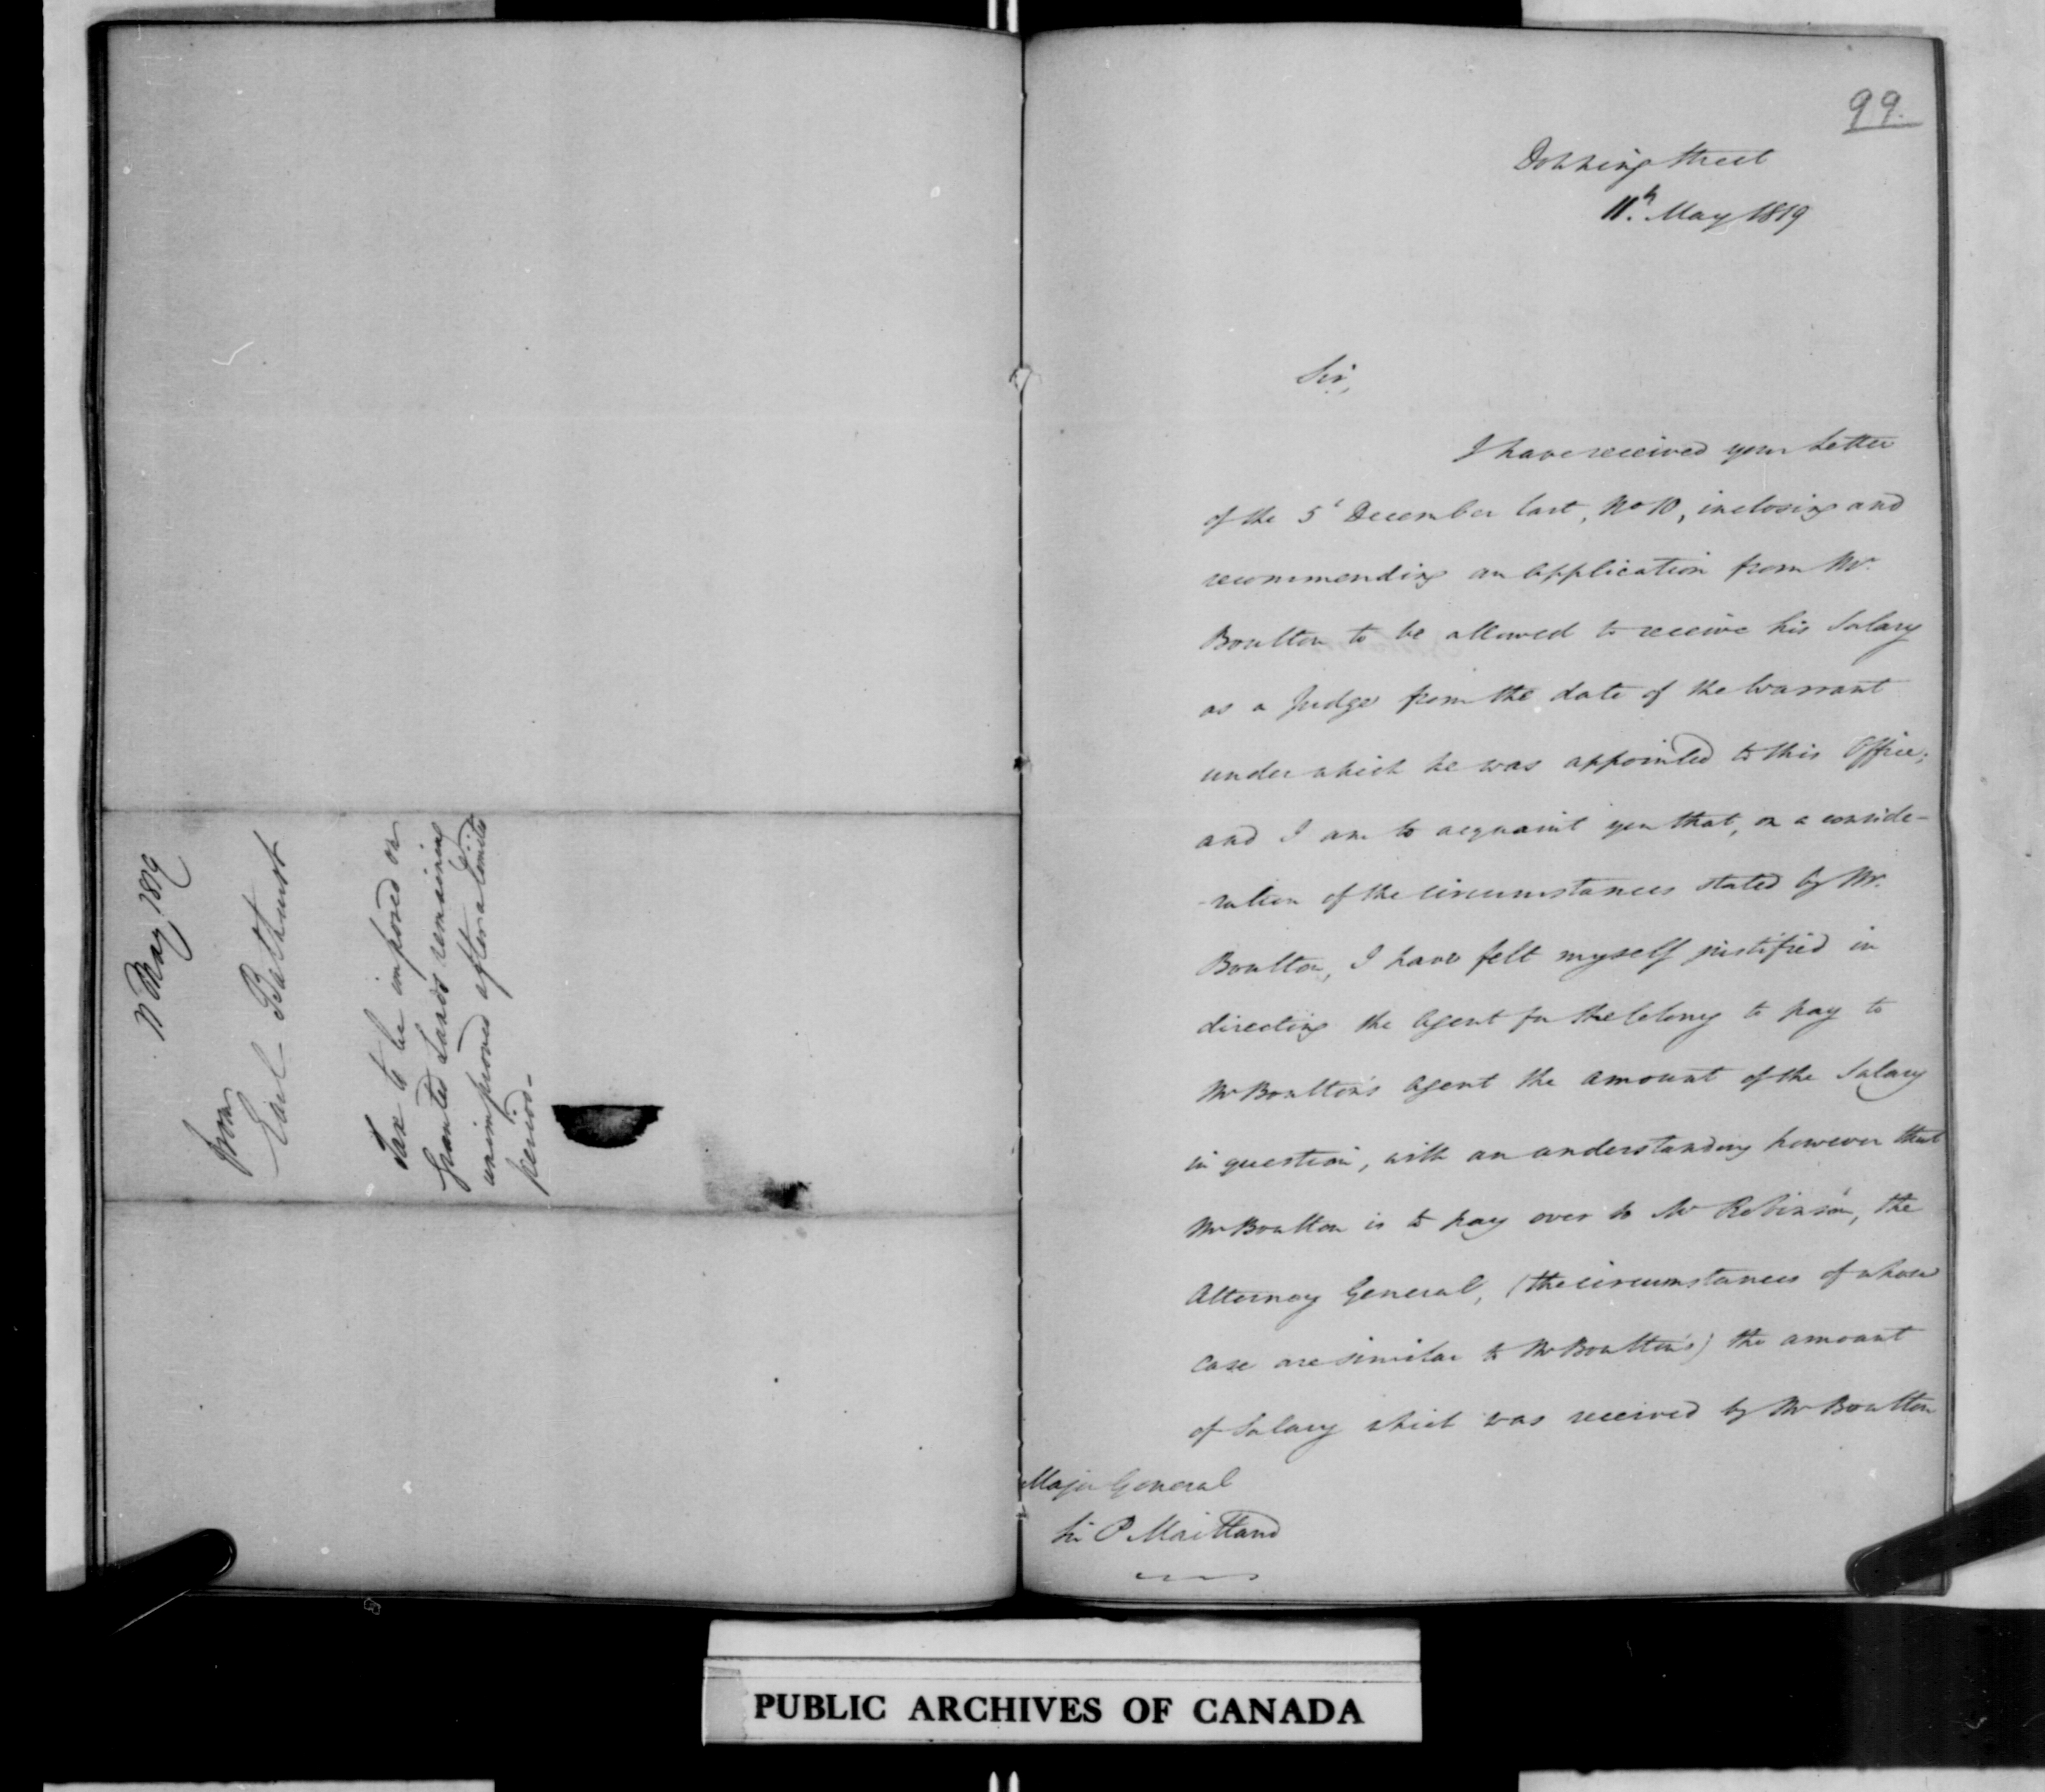 11 May 1819
From
Earl Bathurst
Tax to be imposed on
Granted Lands remaining
unimproved after a limited
period-
99.
Downing Street
11.h May 1819
Sir,
I have received your Letter
of the 5t December last, No 10, inclosing and
recommending an application from Mr.
Boulton to be allowed to receive his Salary
as a Judge from the date of the Warrant
under which he was appointed to this Office;
and I am to acquaint you that, on a conside-
-ration of the circumstances stated by Mr.
Boulton, I have felt myself justified in
directing the Agent for the Colony to pay to
Mr Boulton's Agent the amount of the Salary
in question, with an understanding however that
Mr Boulton is to pay over to Mr Robinson, the
Attorney General, (the circumstances of whose
case are similar to Mr Boulton's) the amount
of Salary which was received by Mr Boulton
Major General
Sir P Maitland
PUBLIC ARCHIVES OF CANADA